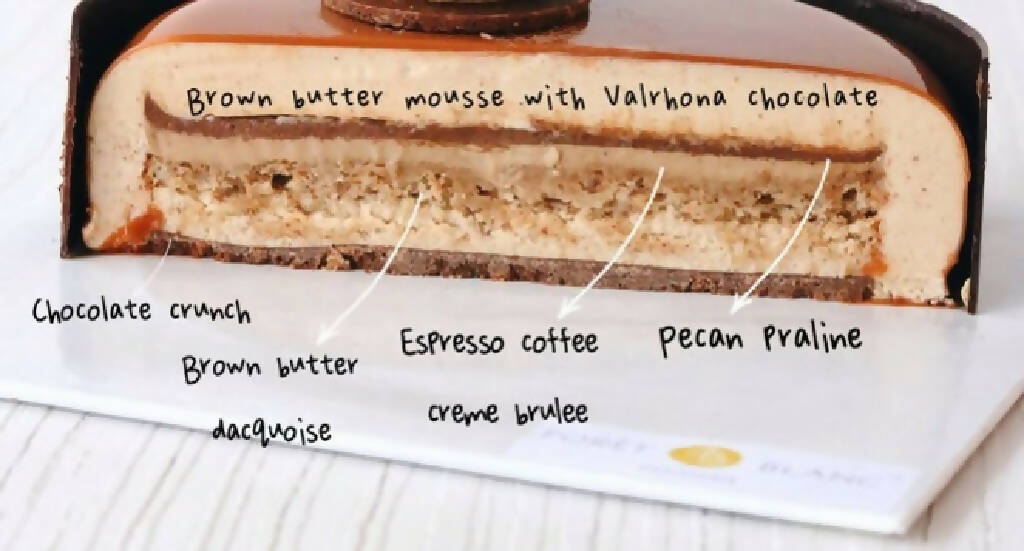 Brown butter mousse with Valrhona chocolate
Chocolate crunch
Brown butter
dacquoise
Espresso coffee
creme brulee
Pecan Praline
FORET BLANC